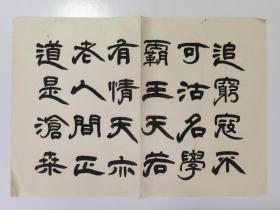 追窮寇不
可沽名學
霸王天若
有情天亦
老人間正
道是滄桑